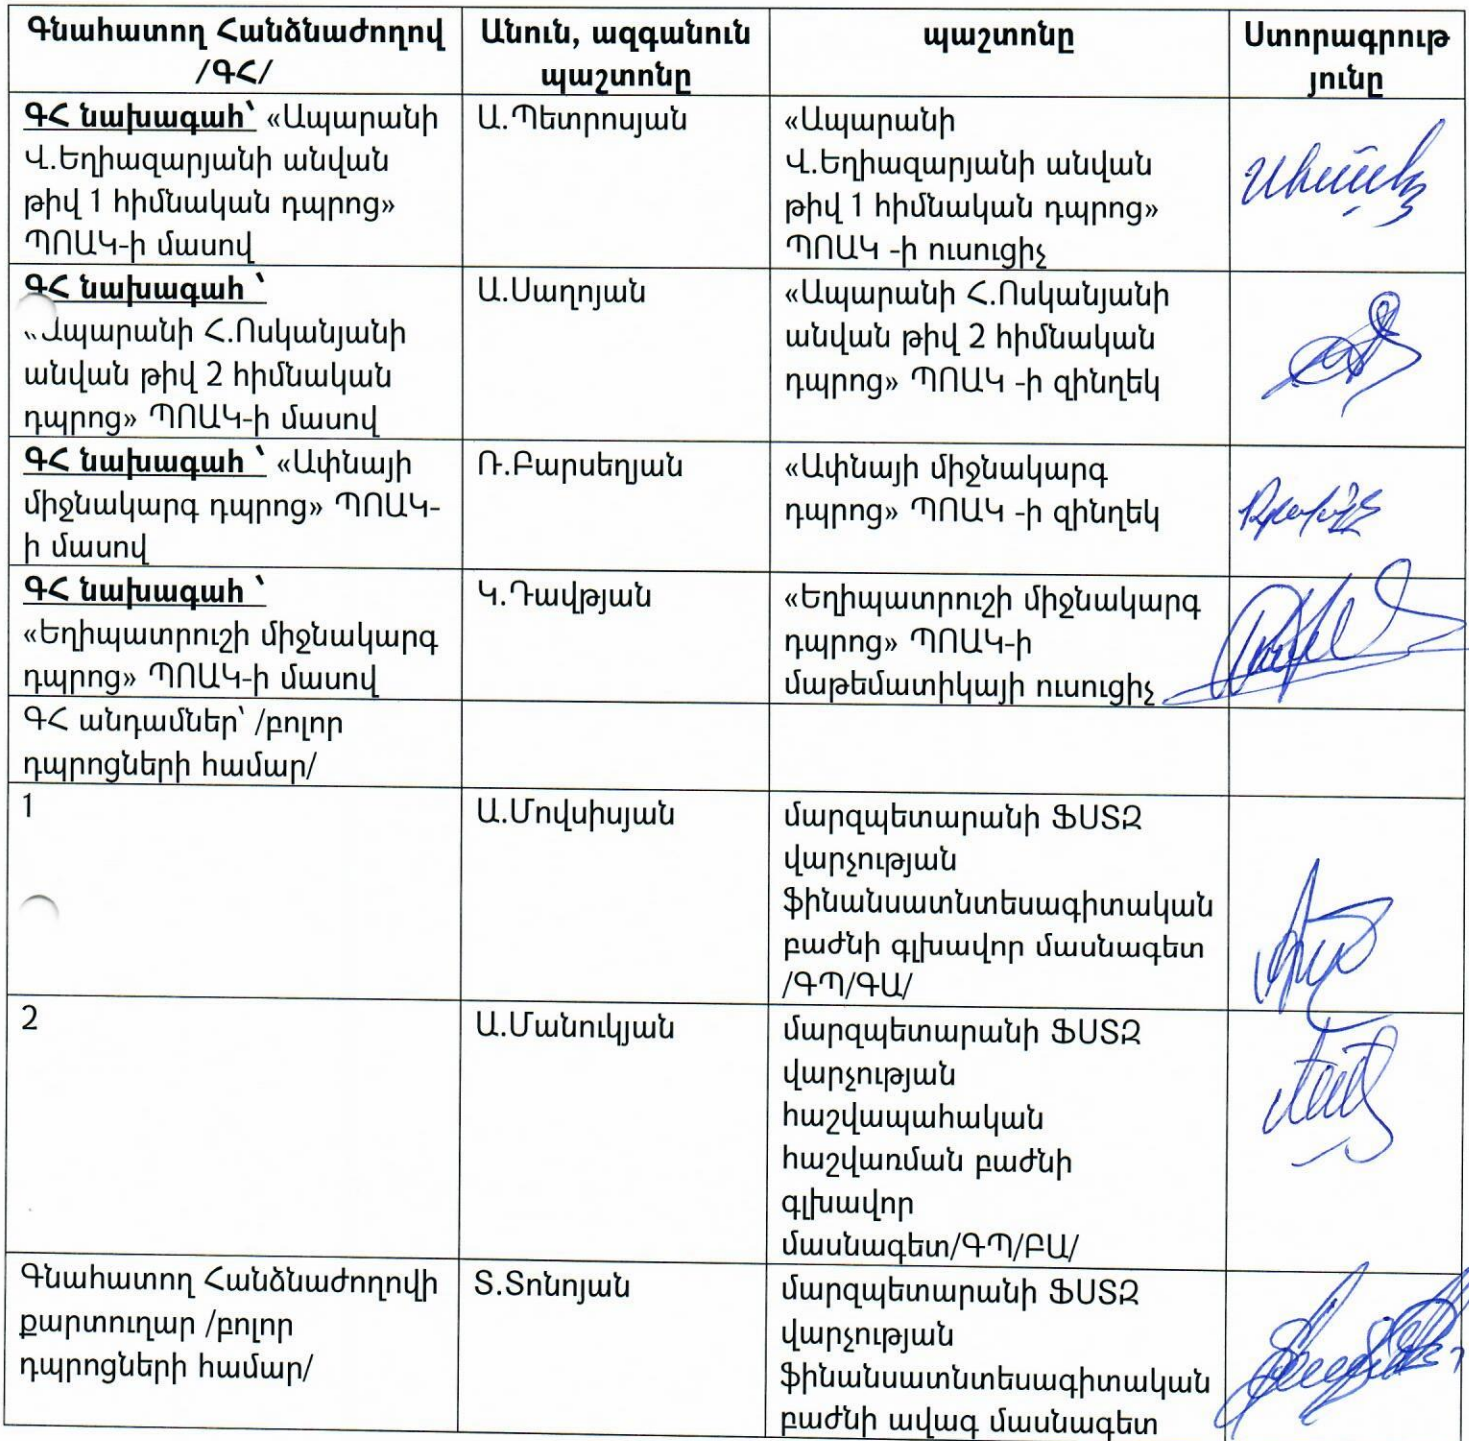 Գնահատող Հանձնաժողով
/ԳՀ/
Անուն, ազգանուն
պաշտոնը
պաշտոնը
Ստորագրութ
յունը
ԳՀ նախագահ՝ «Ապարանի
Վ.Եղիազարյանի անվան
թիվ 1 հիմնական դպրոց»
ՊՈԱԿ-ի մասով
Ա.Պետրոսյան
«Ապարանի
Վ.Եղիազարյանի անվան
թիվ 1 հիմնական դպրոց»
ՊՈԱԿ -ի ուսուցիչ
ԳՀ նախագահ ՝
«Ապարանի Հ.Ոսկանյանի
անվան թիվ 2 հիմնական
դպրոց» ՊՈԱԿ-ի մասով
Ա.Սաղոյան
«Ապարանի Հ.Ոսկանյանի
անվան թիվ 2 հիմնական
դպրոց» ՊՈԱԿ -ի զինղեկ
ԳՀ նախագահ ՝ «Ափնայի
միջնակարգ դպրոց» ՊՈԱԿ-
ի մասով
Ռ.Բարսեղյան
«Ափնայի միջնակարգ
դպրոց» ՊՈԱԿ -ի զինղեկ
ԳՀ նախագահ ՝
«Եղիպատրուշի միջնակարգ
դպրոց» ՊՈԱԿ-ի մասով
Կ.Դավթյան
«Եղիպատրուշի միջնակարգ
դպրոց» ՊՈԱԿ-ի
մաթեմատիկայի ուսուցիչ
ԳՀ անդամներ՝ /բոլոր
դպրոցների համար/
1
Ա.Մովսիսյան
մարզպետարանի ՖՍՏԶ
վարչության
ֆինանսատնտեսագիտական
բաժնի գլխավոր մասնագետ
/ԳՊ/ԳԱ/
2
Ա.Մանուկյան
մարզպետարանի ՖՍՏԶ
վարչության
հաշվապահական
հաշվառման բաժնի
գլխավոր
մասնագետ/ԳՊ/ԲԱ/
Գնահատող Հանձնաժողովի
քարտուղար /բոլոր
դպրոցների համար/
Տ.Տոնոյան
մարզպետարանի ՖՍՏԶ
վարչության
ֆինանսատնտեսագիտական
բաժնի ավագ մասնագետ